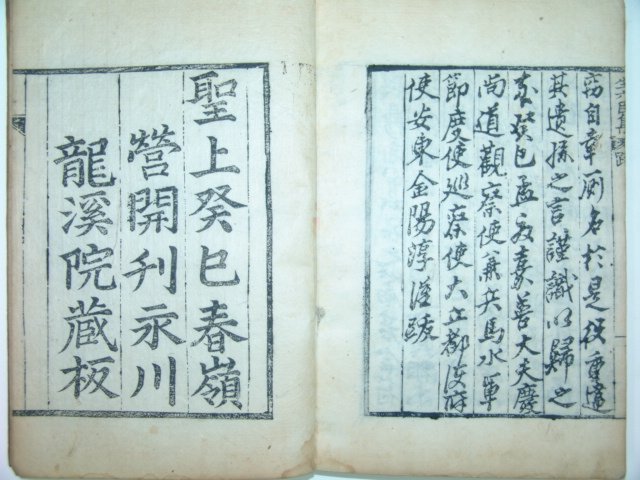 窃自幸厠名於是役重違
其遺孫之言謹識以歸之
歲癸巳孟春嘉善大夫慶
尚道觀察使兼兵馬水軍
節度使巡察使大丘都護府
使安東金陽淳謹跋
聖上癸巳春嶺
營開刊永川
龍溪院藏板